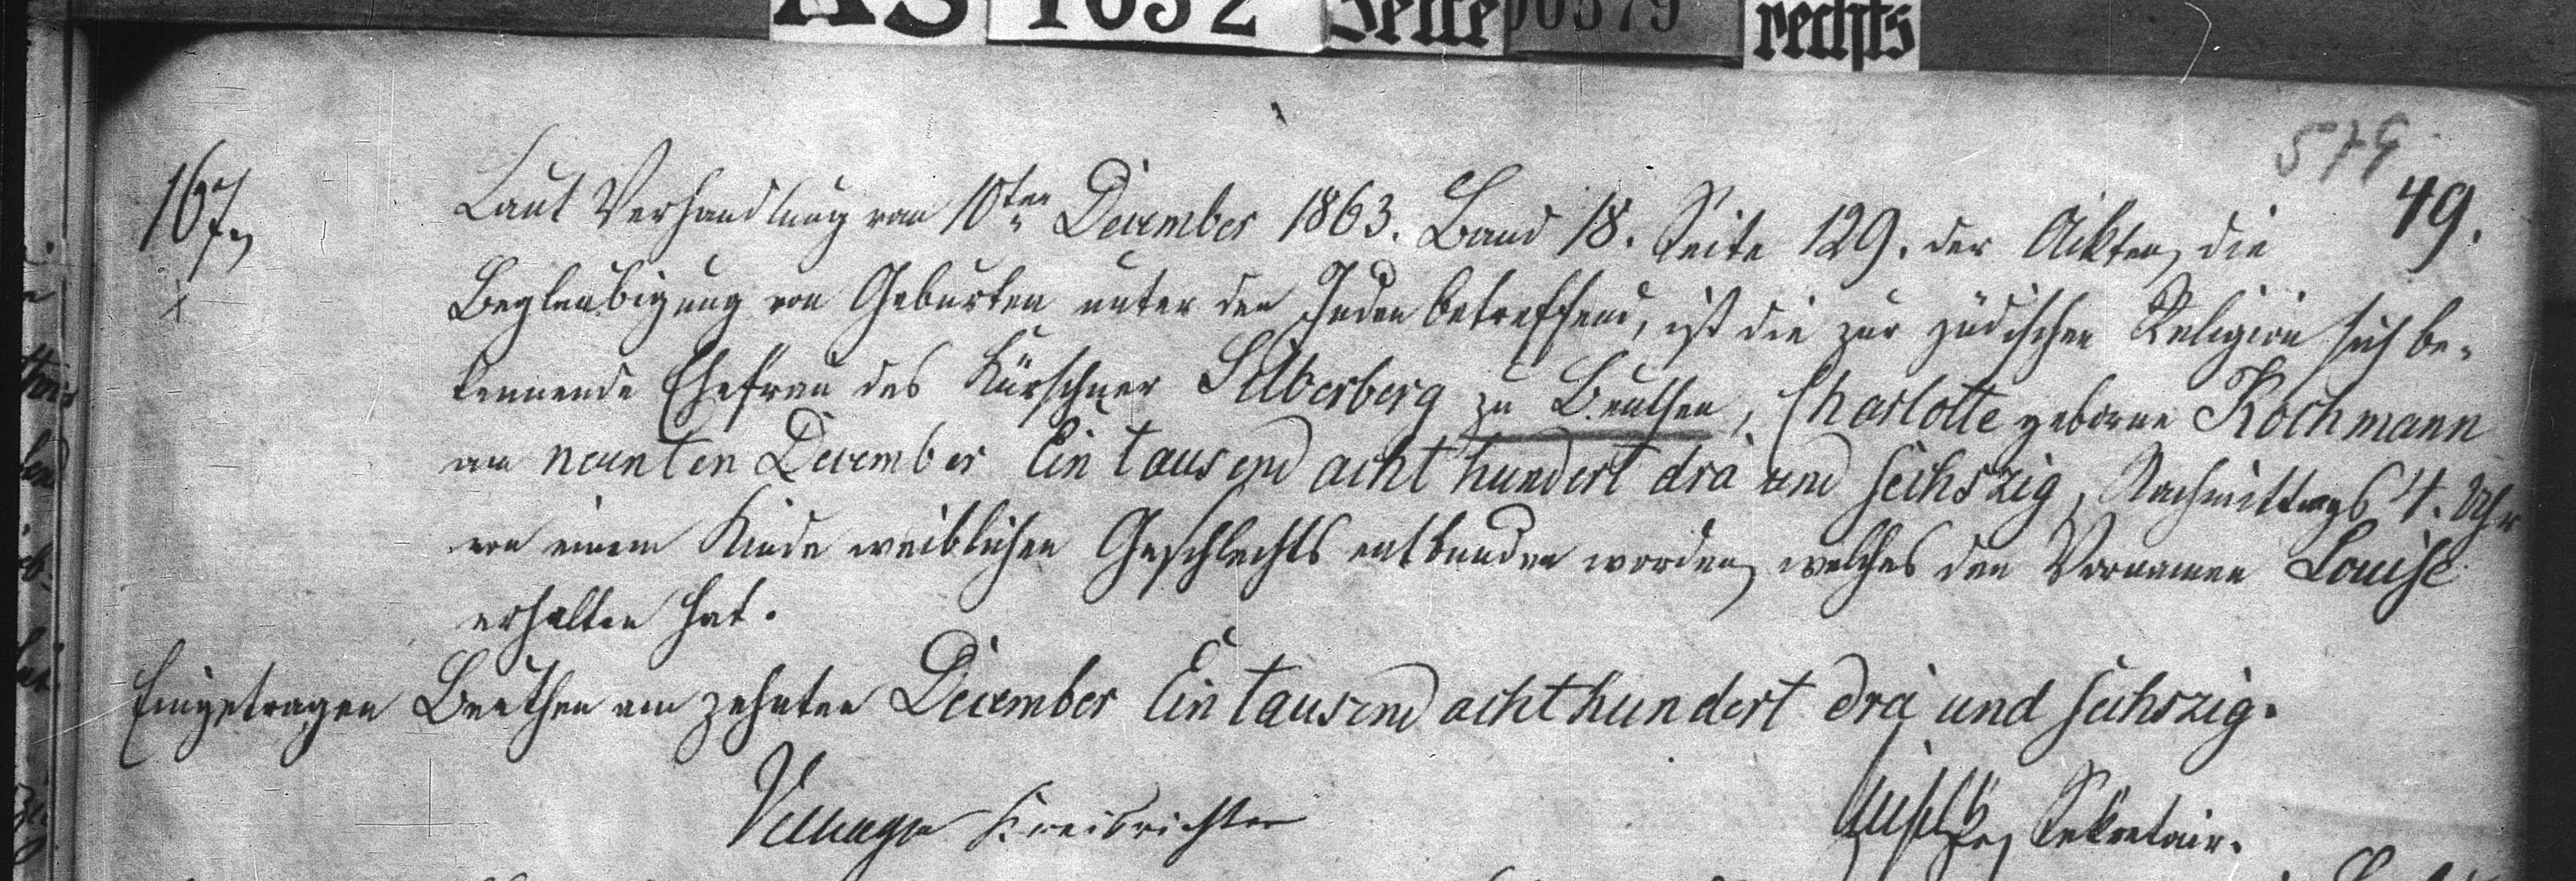 AS 1632 Seite 00579 rechts
579
49.
167. Laut Verhandlung vom 10ten December 1863. Band 18. Seite 129. der Akten, die
Beglaubigung von Geburten unter den Juden betreffend, ist die zur jüdischen Religion sich be-
kennende Ehefrau des Kürschner Silberberg zu Beuthen, Charlotte geborne Kochmann
am neunten December Ein tausend acht hundert drei und sechszig, Nachmittags 4. Uhr
von einem Kinde weiblichen Geschlechts entbunden worden, welches den Vornamen Louise
erhalten hat.
Eingetragen Beuthen am zehnten December Ein tausend acht hundert drei und sechszig.
Kreisrichter Sekretair.